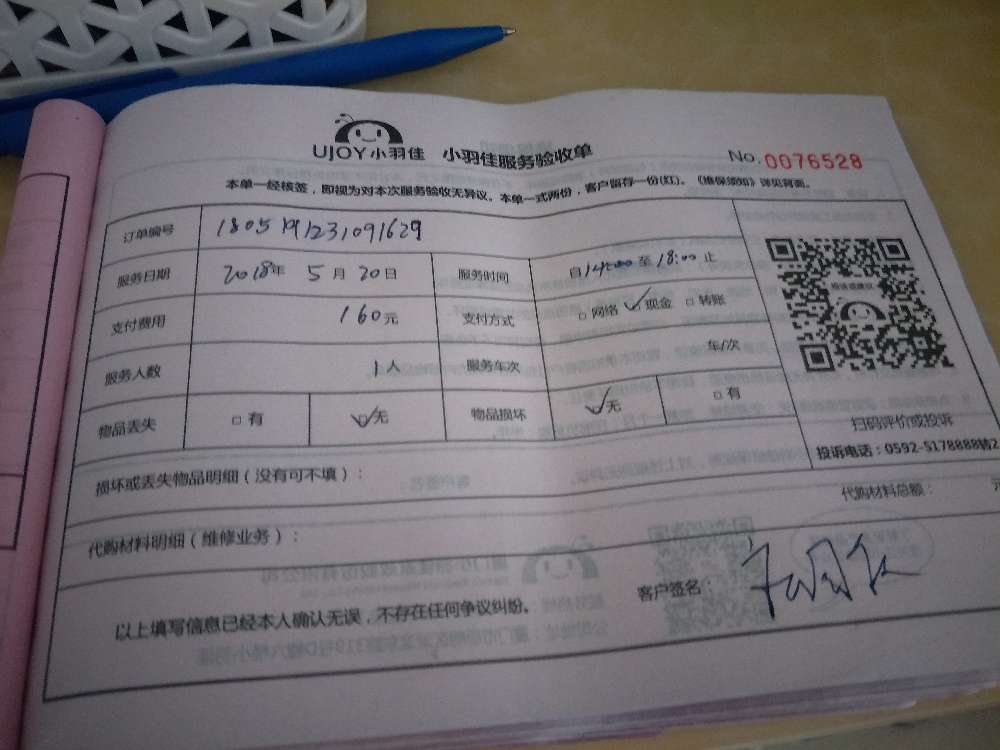 UJOY小羽佳 小羽佳服务验收单 No.0076528
本单一经核签，即视为对本次服务验收无异议。本单一式两份，客户留存一份(红)。《维保须知》详见背面。
订单编号 1805191231091629
服务日期 2018年 5月20日 服务时间 自14:00至18:00止
支付费用 160元 支付方式 □网络 ☑现金 □转账
服务人数 1人 服务车次 车/次
物品丢失 □有 ☑无 物品损坏 ☑无 □有
投诉或建议
扫码评价或投诉
投诉电话：0592-5178888转2
损坏或丢失物品明细（没有可不填）：
代购材料明细（维修业务）： 代购材料总额： 元
以上填写信息已经本人确认无误，不存在任何争议纠纷。 客户签名：